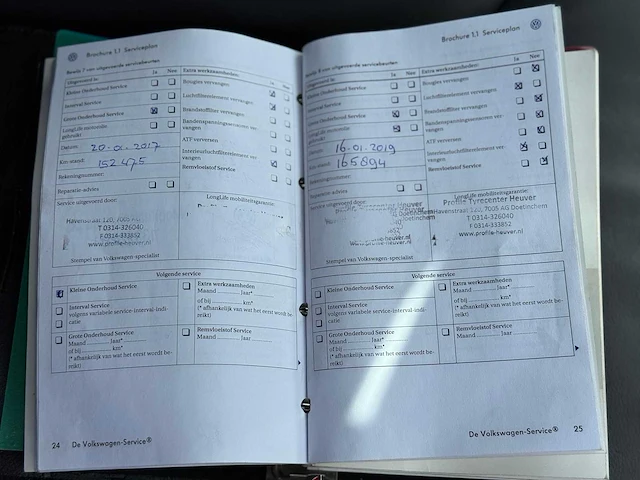 Brochure 1.1 Serviceplan
Bewijs 7 van uitgevoerde servicebeurten
Uitgevoerd is: Ja Nee
Kleine Onderhoud Service
Interval Service
Grote Onderhoud Service
LongLife motorolie gebruikt:
Datum: 20-01-2017
Km-stand: 152.475
Rekeningnummer:
Reparatie-advies
Service uitgevoerd door:
Havenstraat 120, 7005 AG
T 0314-326040
F 0314-333852
www.profile-heuver.nl
Stempel van Volkswagen-specialist
Extra werkzaamheden: Ja Nee
Bougies vervangen
Luchtfilterelement vervangen
Brandstoffilter vervangen
Bandenspanningssensoren vervangen
ATF verversen
Interieurluchtfilterelement vervangen
Remvloeistof Service
LongLife mobiliteitsgarantie:
Volgende service
Kleine Onderhoud Service
Interval Service
volgens variabele service-interval-indi-
catie
Grote Onderhoud Service
Maand ......... laar*
of bij ......... km*
(* afhankelijk van wat het eerst wordt be-
reikt)
Extra werkzaamheden
Maand ......... laar*
of bij ......... km*
(* afhankelijk van wat het eerst wordt be-
reikt)
Remvloeistof Service
Maand ......... laar
24 De Volkswagen-Service®
Brochure 1.1 Serviceplan
Bewijs 8 van uitgevoerde servicebeurten
Uitgevoerd is: Ja Nee
Kleine Onderhoud Service
Interval Service
Grote Onderhoud Service
LongLife motorolie
16-01-2019
165894
Rekeningnummer:
Reparatie-advies
Service uitgevoerd door:
Profile Tyrecenter Heuver
Stempel van Volkswagen-specialist
Extra werkzaamheden: Ja Nee
Bougies vervangen
Luchtfilterelement vervangen
Brandstoffilter vervangen
Bandenspanningssensoren ver-
vangen
ATF verversen
Interieurluchtfilterelement ver-
vangen
Remvloeistof Service
LongLife mobiliteitsgarantie:
Profile Tyrecenter Heuver
Havenstraat 120, 7005 AG Doetinchem
T 0314-326040
F 0314-333852
www.profile-heuver.nl
Volgende service
Kleine Onderhoud Service
Interval Service
volgens variabele service-interval-indi-
catie
Grote Onderhoud Service
Maand ......... laar*
of bij ......... km*
(* afhankelijk van wat het eerst wordt be-
reikt)
Extra werkzaamheden
Maand ......... laar*
of bij ......... km*
(* afhankelijk van wat het eerst wordt be-
reikt)
Remvloeistof Service
Maand ......... laar
De Volkswagen-Service® 25